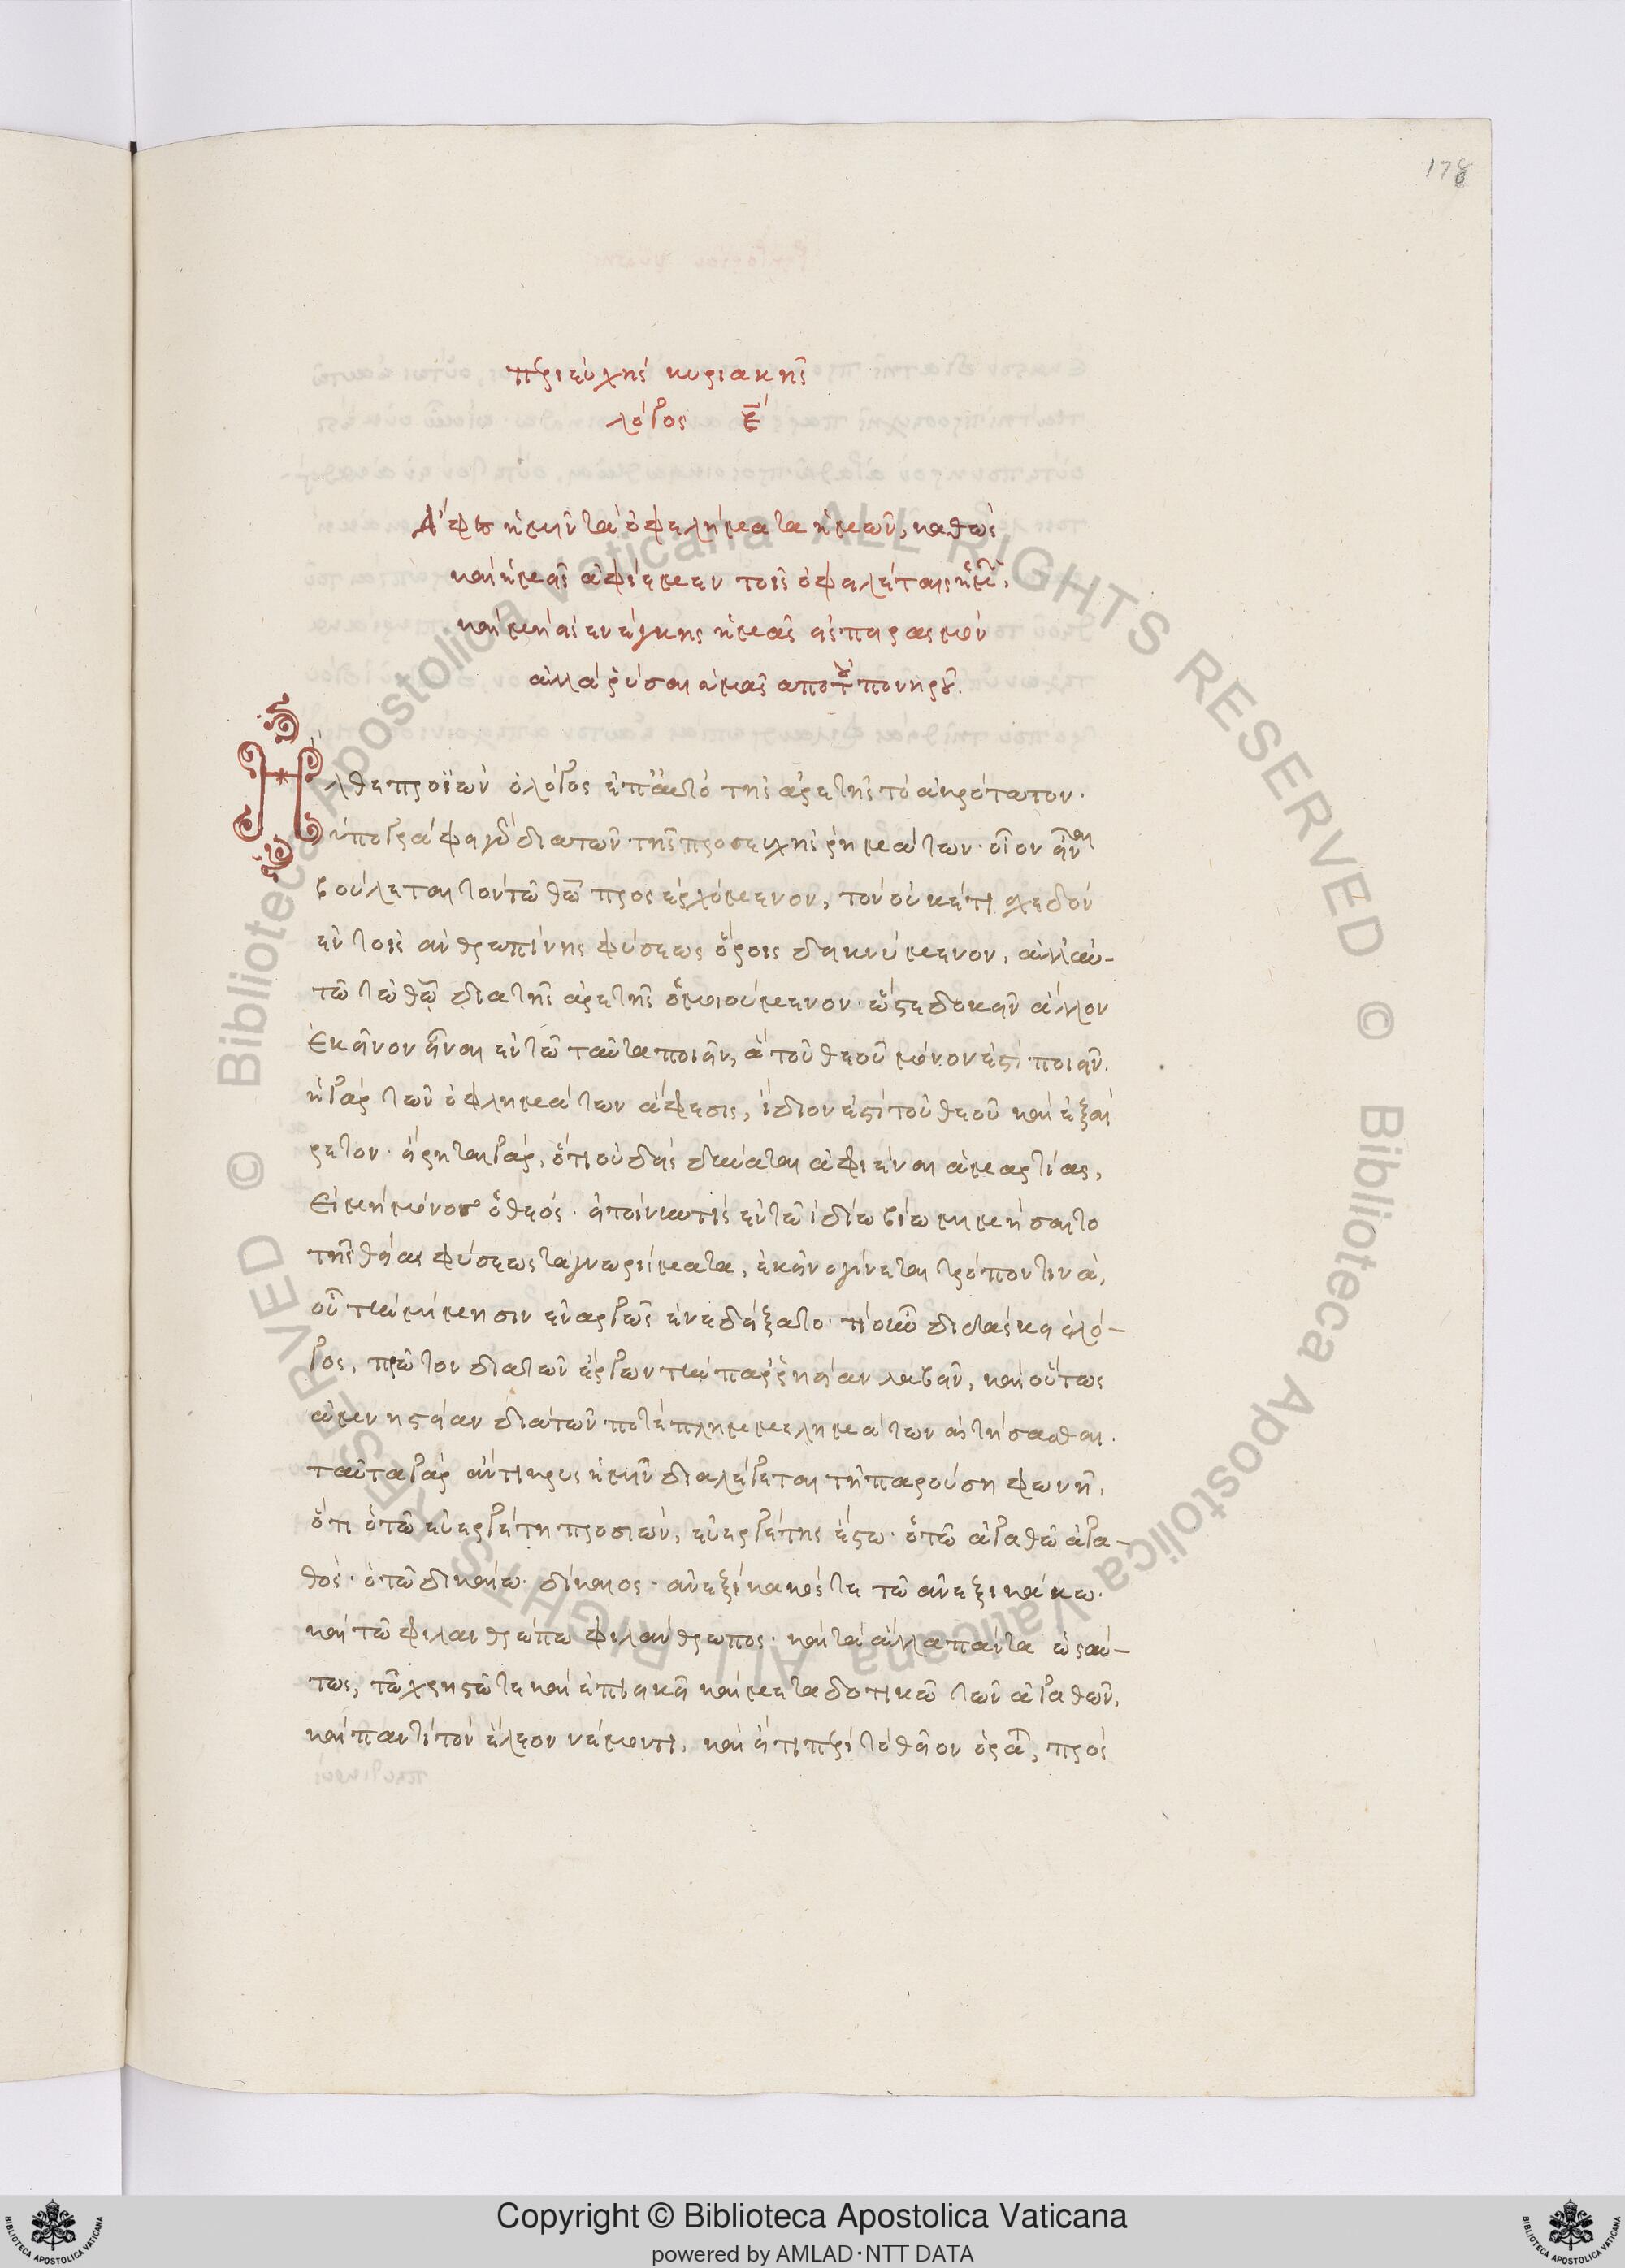 178
περὶ εὐχῆς κυριακῆς
λόγος ε̄
Ἄφες ἡμῖν τὰ ὀφειλήματα ἡμῶν, καθὼς
καὶ ἡμεῖς ἀφίεμεν τοῖς ὀφειλέταις ἡμῶν,
καὶ μὴ εἰσενέγκῃς ἡμᾶς εἰς πειρασμὸν
ἀλλὰ ῥύσαι ἡμᾶς ἀπὸ τοῦ πονηροῦ.
Ἦλθε προϊὼν ὁ λόγος ἐπ' αὐτὸ τῆς ἀρετῆς τὸ ἀκρότατον.
ὑπογράφει γὰρ διὰ τῶν τῆς προσευχῆς ῥημάτων· οἷον εἶναι
βούλεται τὸν τῷ θεῷ προσερχόμενον, τὸν οὐκέτι σχεδὸν
ἐν τοῖς ἀνθρωπίνης φύσεως ὅροις δεικνύμενον, ἀλλ' αὐ-
τῷ τῷ θεῷ διὰ τῆς ἀρετῆς ὁμοιούμενον· ὥστε δοκεῖν ἄλλον
ἐκεῖνον εἶναι ἐν τῷ ταῦτα ποιεῖν, ἃ τοῦ θεοῦ μόνον ἐστὶ ποιεῖν.
ἡ γὰρ τῶν ὀφλημάτων ἄφεσις, ἴδιον ἐστὶ τοῦ θεοῦ καὶ ἐξαί
ρετον· εἴρηται γὰρ, ὅτι οὐδεὶς δύναται ἀφιέναι ἁμαρτίας,
Εἰ μὴ μόνος ὁ θεός· εἰ τοίνυν τις ἐν τῷ ἰδίῳ βίῳ μιμήσαιτο
τῆς θείας φύσεως τὰ γνωρίσματα, ἐκεῖνο γίνεται τρόπον τινὰ,
οὗ τὴν μίμησιν ἐναργῶς ἐνεδείξατο· τί οὖν διδάσκει ὁ λό-
γος, πρῶτον διὰ τῶν ἔργων τὴν παρρησίαν λαβεῖν, καὶ οὕτως
ἀμνηστείαν διὰ τῶν ποτὲ πλημμελημάτων αἰτήσασθαι.
ταῦτα γὰρ ἄντικρυς ἡμῖν διαλέγεται τῇ παρούσῃ φωνῇ,
ὅτι ὁ τῷ εὐεργέτῃ προσιὼν, εὐεργέτης ἔστω· ὁ τῷ ἀγαθῷ ἀγα-
θὸς· ὁ τῷ δικαίῳ δίκαιος· ἀνεξίκακός τε τῷ ἀνεξικάκῳ.
καὶ τῷ φιλανθρώπῳ φιλάνθρωπος· καὶ τὰ ἄλλα πάντα ὡσαύ-
τως, τῷ χρηστῷ τε καὶ ἐπιεικεῖ καὶ μεταδοτικῷ τῶν ἀγαθῶν,
καὶ παντὶ τὸν ἔλεον νέμοντι, καὶ εἴ τι περὶ τὸ θεῖον ὁρᾷ, πρὸς
Copyright © Biblioteca Apostolica Vaticana
powered by AMLAD·NTT DATA